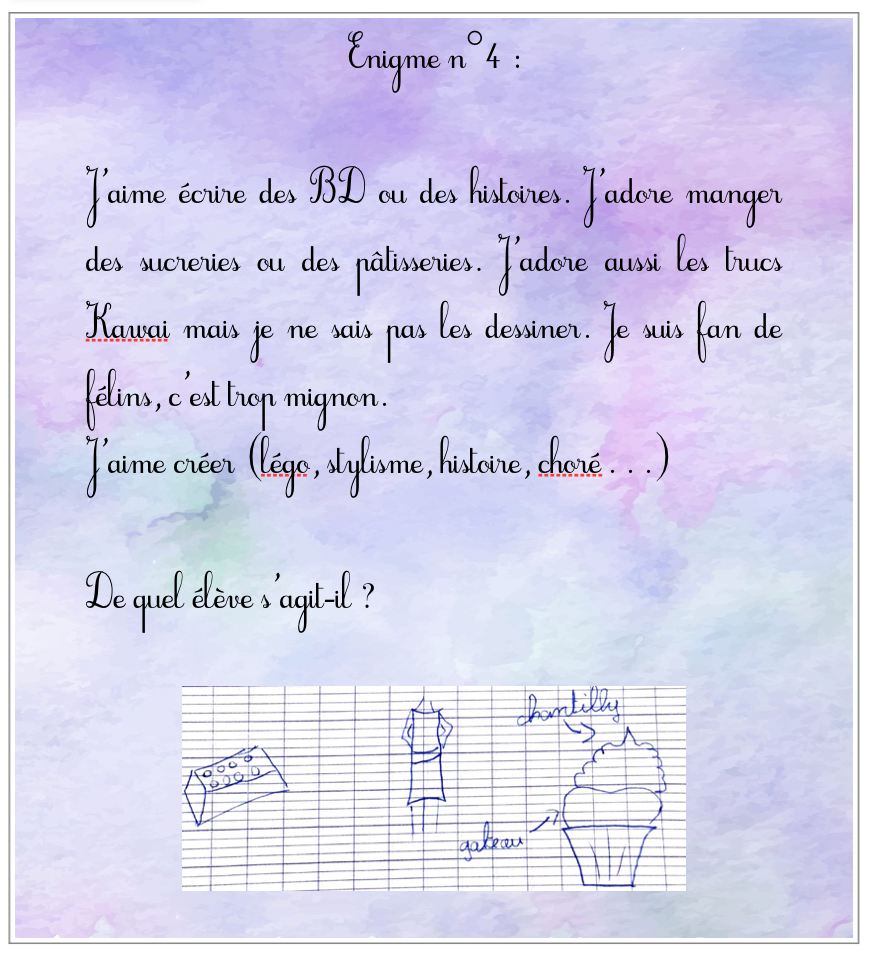 Enigme n°4 :
J'aime écrire des BD ou des histoires. J'adore manger
des sucreries ou des pâtisseries. J'adore aussi les trucs
Kawai mais je ne sais pas les dessiner. Je suis fan de
félins, c'est trop mignon.
J'aime créer (légo, stylisme, histoire, choré...)
De quel élève s'agit-il ?
chantilly
gateau